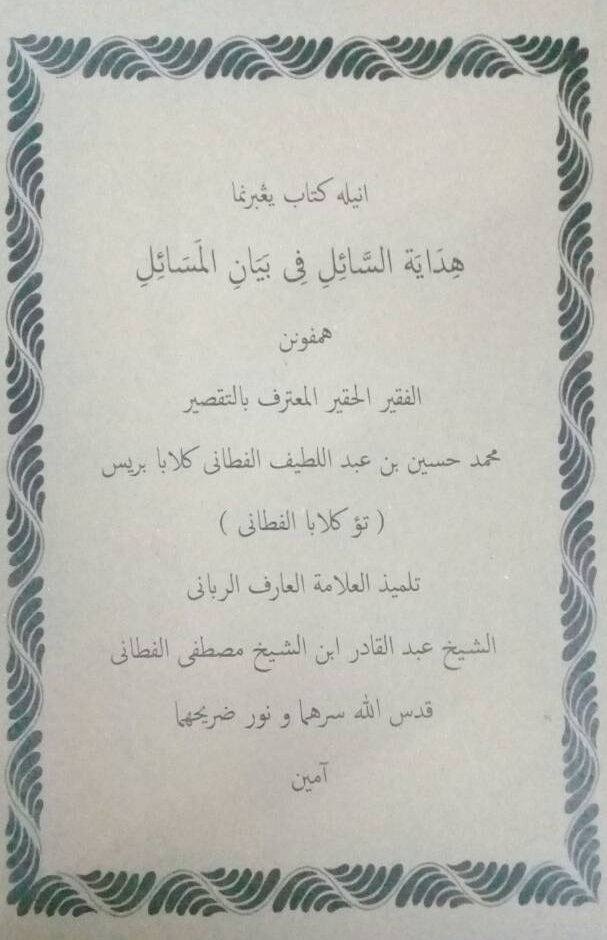 انيله کتاب يڠبرنما
هِدَايَة السَّائِلِ فِى بَيَانِ المَسَائِلِ
همفونن
الفقير الحقير المعترف بالتقصير
محمد حسين بن عبد اللطيف الفطانى کلابا بريس
( تؤ کلابا الفطانى )
تلميذ العلامة العارف الربانى
الشيخ عبد القادر ابن الشيخ مصطفى الفطانى
قدس الله سرهما و نور ضريحهما
آمين